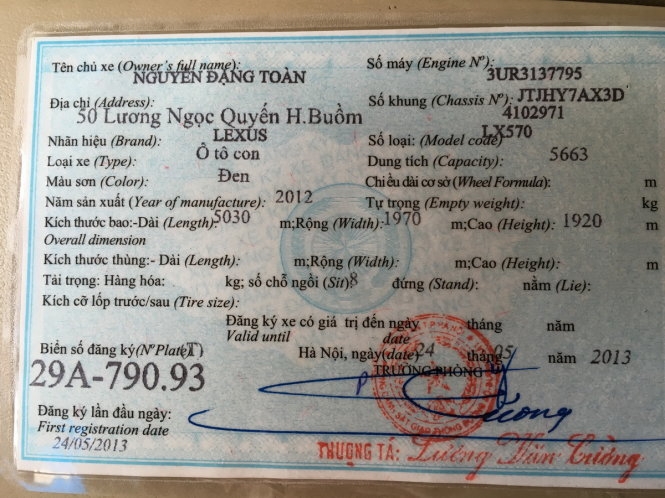 Tên chủ xe (Owner's full name): Số máy (Engine Nº):
NGUYỄN ĐẶNG TOÀN 3UR3137795
Địa chỉ (Address): Số khung (Chassis Nº): JTJHY7AX3D
50 Lương Ngọc Quyến H.Buồm 4102971
Nhãn hiệu (Brand): LEXUS Số loại: (Model code) LX570
Loại xe (Type): Ô tô con Dung tích (Capacity): 5663
Màu sơn (Color): Đen Chiều dài cơ sở (Wheel Formula): m
Năm sản xuất (Year of manufacture): 2012 Tự trọng (Empty weight): kg
Kích thước bao:-Dài (Length): 5030 m;Rộng (Width): 1970 m;Cao (Height): 1920 m
Overall dimension
Kích thước thùng:- Dài (Length): m;Rộng (Width): m;Cao (Height): m
Tải trọng: Hàng hóa: kg; số chỗ ngồi (Sit) 8 đứng (Stand): nằm (Lie):
Kích cỡ lốp trước/sau (Tire size):
Đăng ký xe có giá trị đến ngày tháng năm
Valid until date
Biển số đăng ký(Nº Plate) (T) Hà Nội, ngày(date) 24 tháng 05 năm 2013
29A-790.93 TRƯỞNG PHÒNG
Đăng ký lần đầu ngày:
First registration date
24/05/2013
THƯỢNG TÁ: